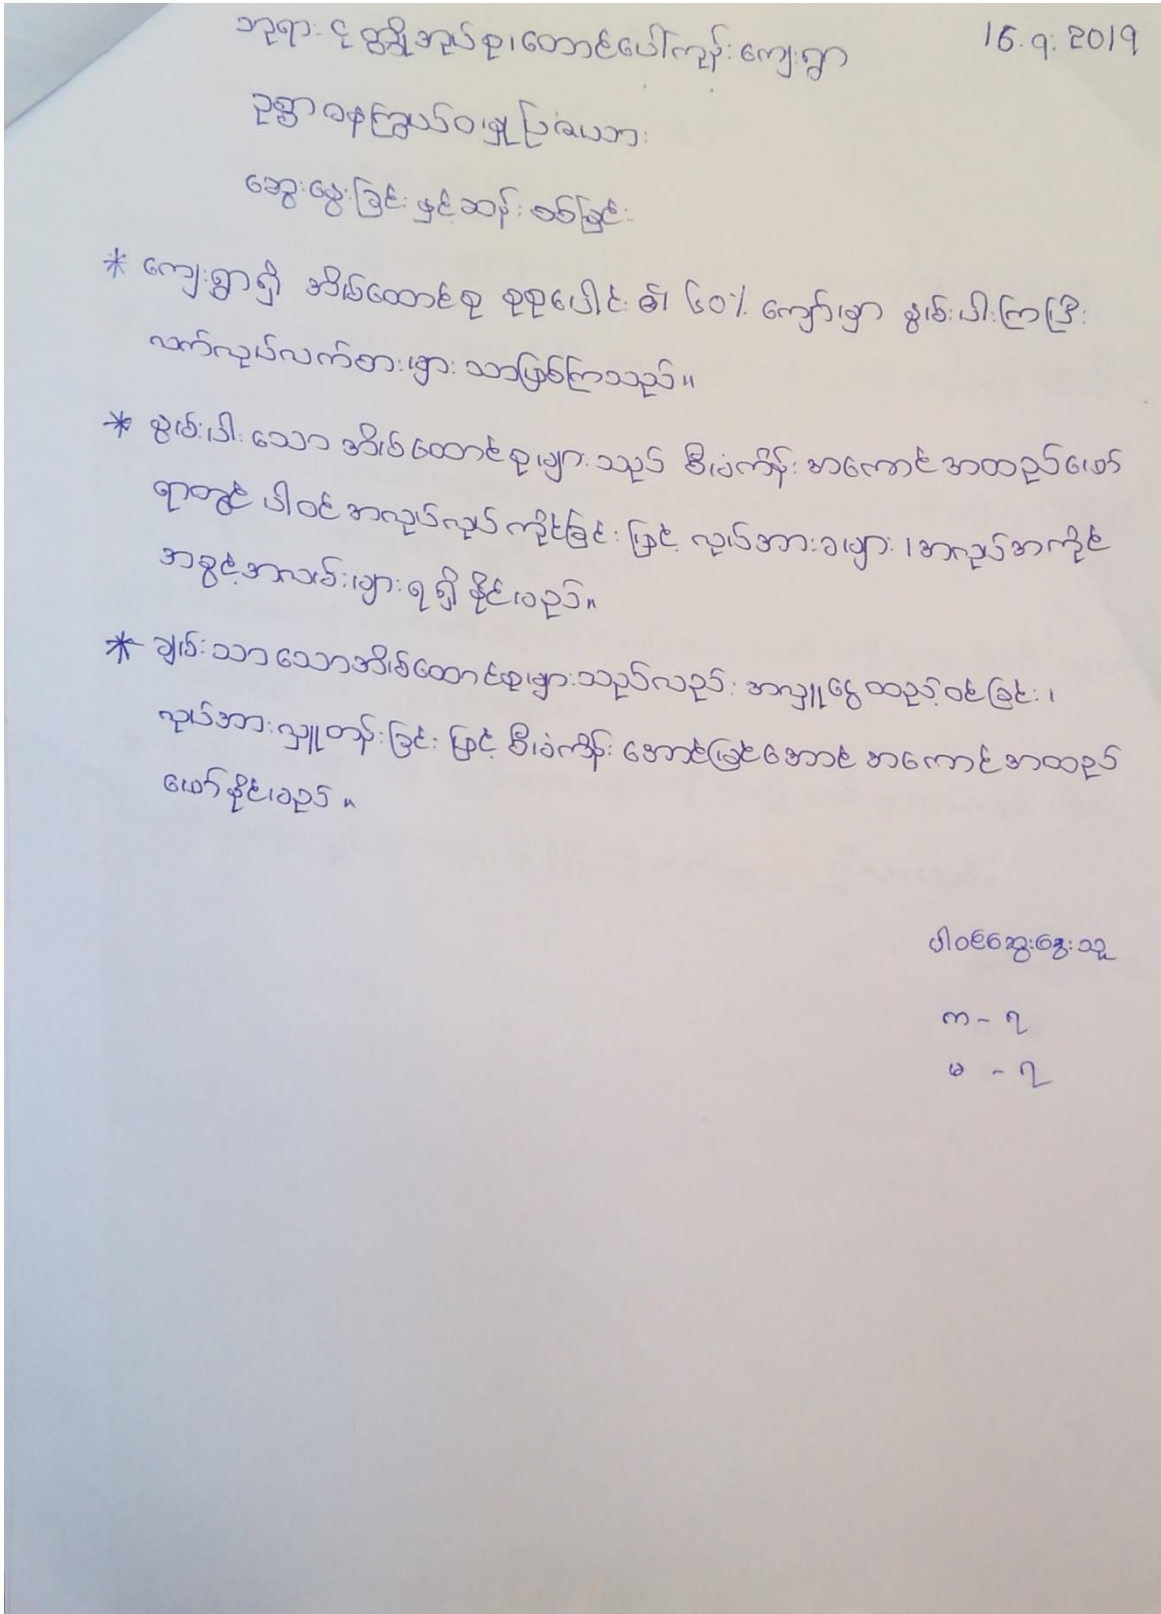 ဘုရားငုတ္တိုအုပ်စု၊ တောင်ပေါ်ကုန်းကျေးရွာ
16.9.2019
ဥစ္စာဓနကြွယ်ဝမှုပြဇယား
ဆွေးနွေးခြင်းနှင့်ဆန်းစစ်ခြင်း
* ကျေးရွာရှိ အိမ်ထောင်စု စုစုပေါင်း၏ ၆၀% ကျော်မှာ နွမ်းပါးကြပြီး
လက်လုပ်လက်စားများသာဖြစ်ကြသည်။
* နွမ်းပါးသော အိမ်ထောင်စုများသည် စီမံကိန်းအကောင်အထည်ဖော်
ရာတွင် ပါဝင်အလုပ်လုပ်ကိုင်ခြင်းဖြင့် လုပ်အားခများ၊ အလုပ်အကိုင်
အခွင့်အလမ်းများရရှိနိုင်မည်။
* ချမ်းသာသောအိမ်ထောင်စုများသည်လည်း အလှူငွေထည့်ဝင်ခြင်း၊
လုပ်အားလှူတန်းခြင်းဖြင့် စီမံကိန်းအောင်မြင်အောင် အကောင်အထည်
ဖော်နိုင်မည်။
ပါဝင်ဆွေးနွေးသူ
ကာ - ၇
မ - ၇